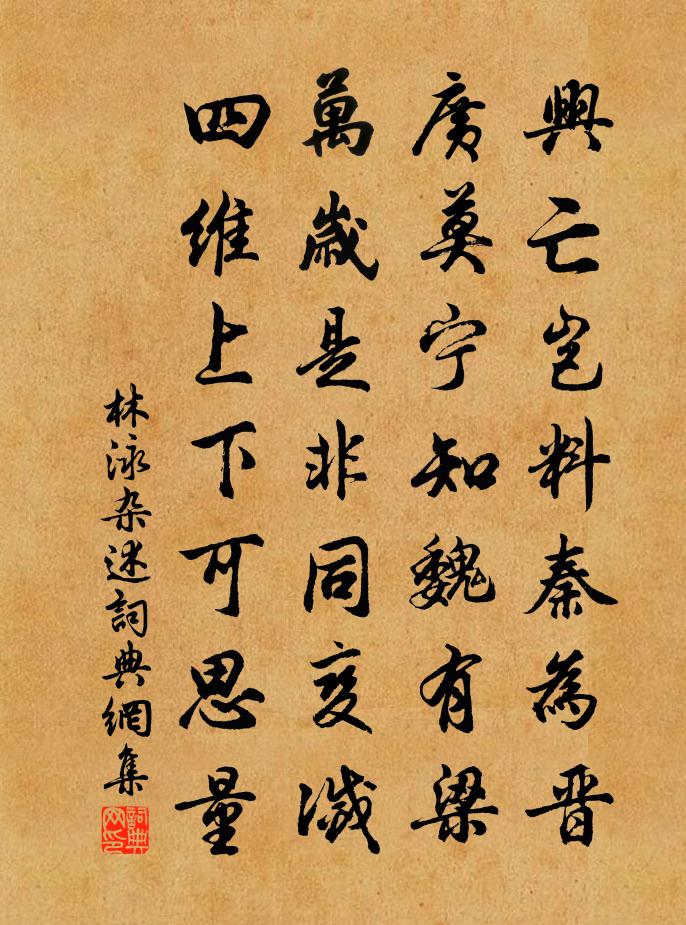 興亡豈料秦為晉
廣莫宁知魏有梁
萬歲是非同变滅
四維上下可思量
林泳杂述詞典網集
詞典网印